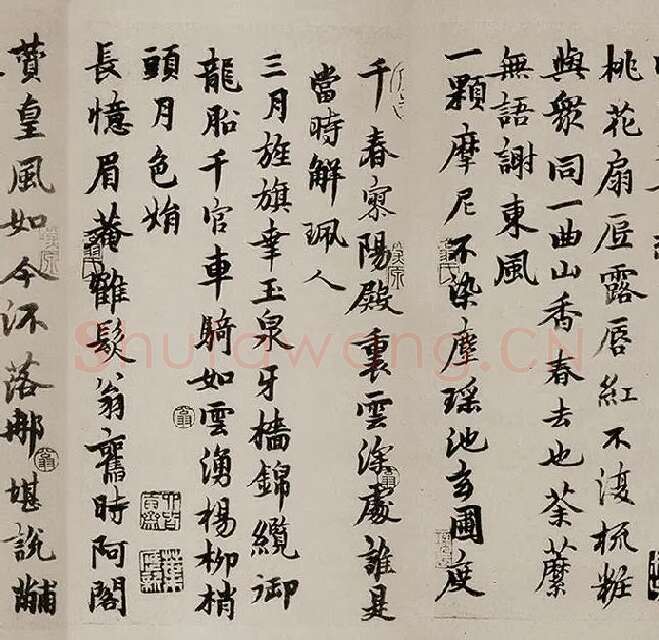 桃花扇底露唇紅不復梳粧
與衆同一曲山香春去也荼蘼
無語謝東風
一顆摩尼不染塵瑤池玄圃度
千春寥陽殿裏雲深處誰是
當時解珮人
三月旌旗幸玉泉牙檣錦纜御
龍船千官車騎如雲湧楊柳梢
頭月色娟
長憶眉菴鶴髮翁舊時阿閣
贊皇風如今流落那堪說黼
Shufawang.CN